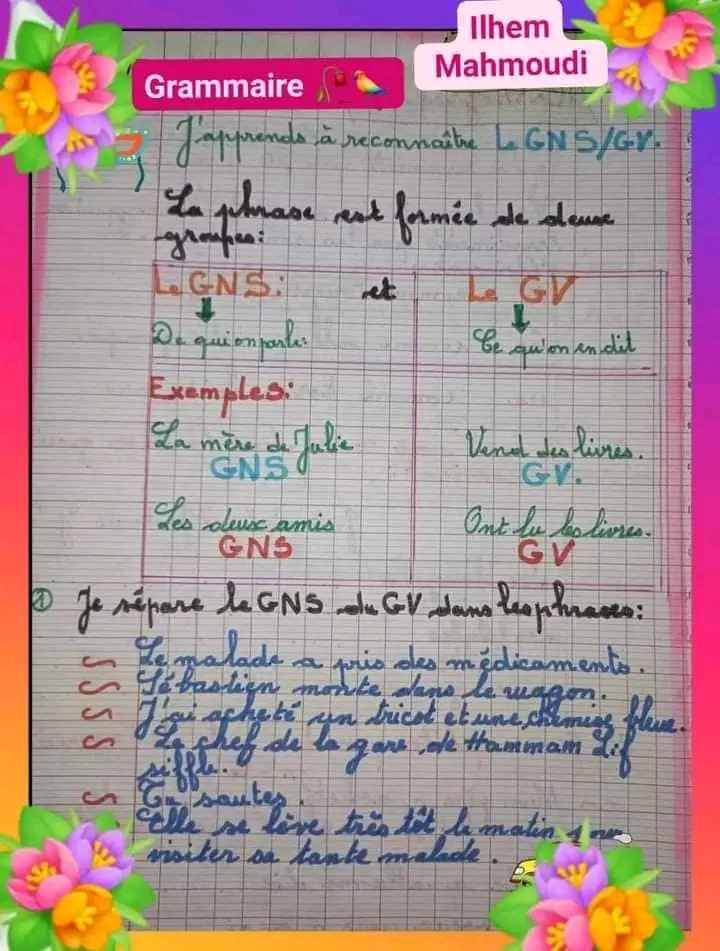 Ilhem
Mahmoudi
Grammaire
J'apprends à reconnaître Le GNS/GV.
La phrase est formée de deux
groupes:
Le GNS: et Le GV
De qui on parle: Ce qu'on en dit
Exemples:
La mère de Julie Vend des livres.
GNS GV.
Les deux amis Ont lu les livres.
GNS GV
① Je sépare le GNS du GV dans les phrases:
Le malade a pris des médicaments.
Sébastien monte dans le wagon.
J'ai acheté un tricot et une chemise bleue.
Le chef de la gare de Hammam Lif
siffle.
Tu sautes.
Elle se lève très tôt le matin pour
visiter sa tante malade.